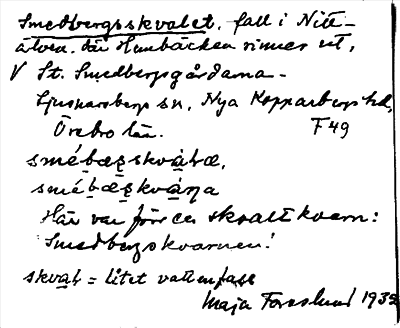 Smedbergsskvalet, fall i Nitt-
älven, där Hanbäcken rinner ut,
V St. Smedbergsgårdarna.
Ljusnarsbergs sn, Nya Kopparbergs hd,
Örebro län. F49
smébæʂskvàḷæ,
smébæʂkvàṇa
Här var förr en skvaltkvarn:
Smedbergskvarnen!
skvaḷ = litet vattenfall
Maja Forsslund 1935